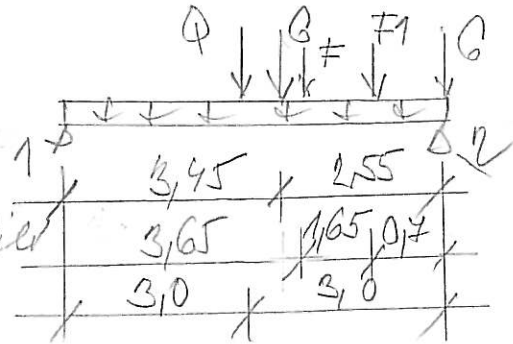 Q G F F1 G
1 2
3,45 2,55
3,65 1,65 0,7
3,0 3,0